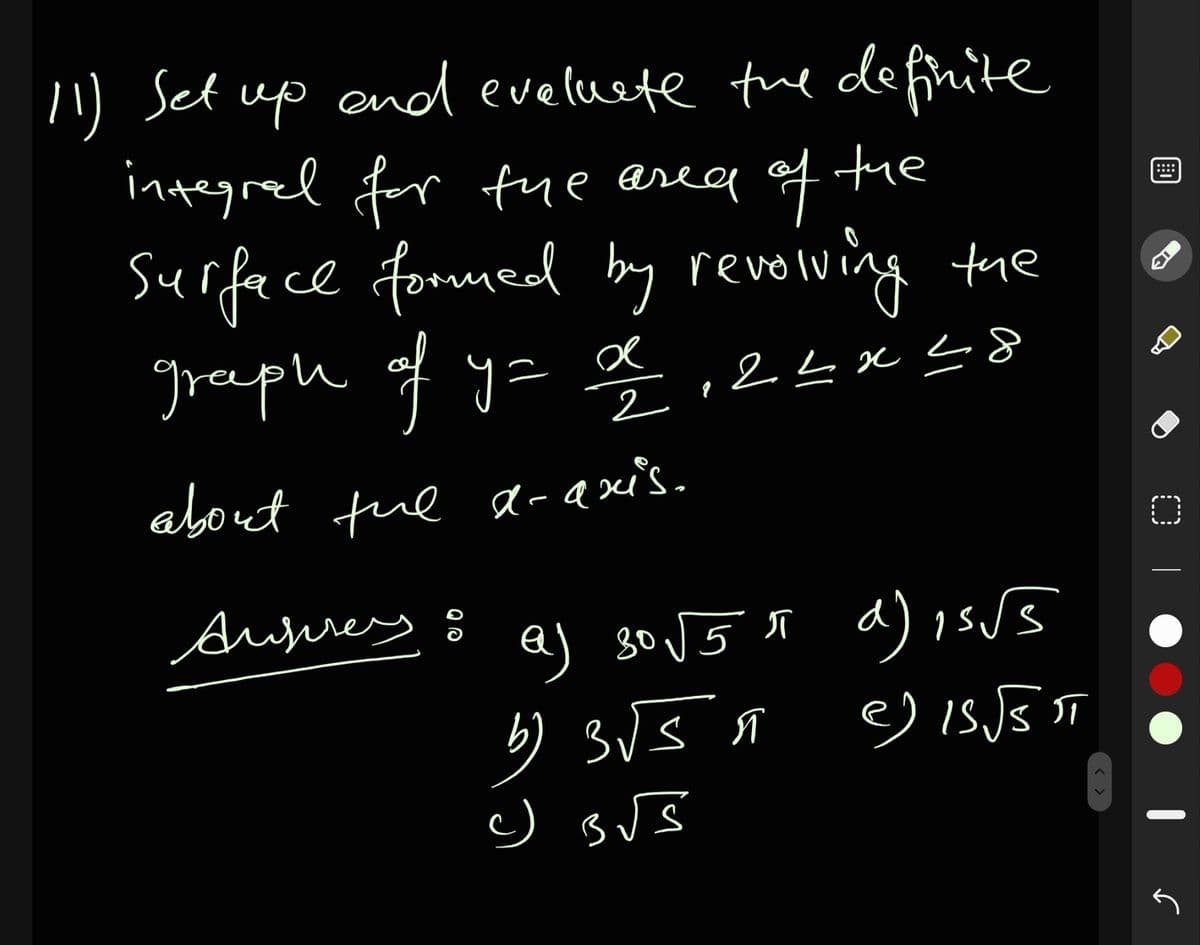 11) Set up and evaluate the definite
integral for the area of the
surface formed by revolving the
graph of y = x/2 , 2 ≤ x ≤ 8
about the x-axis.
Answers : a) 30√5 π d) 15√5
b) 3√5 π e) 15√5 π
c) 3√5